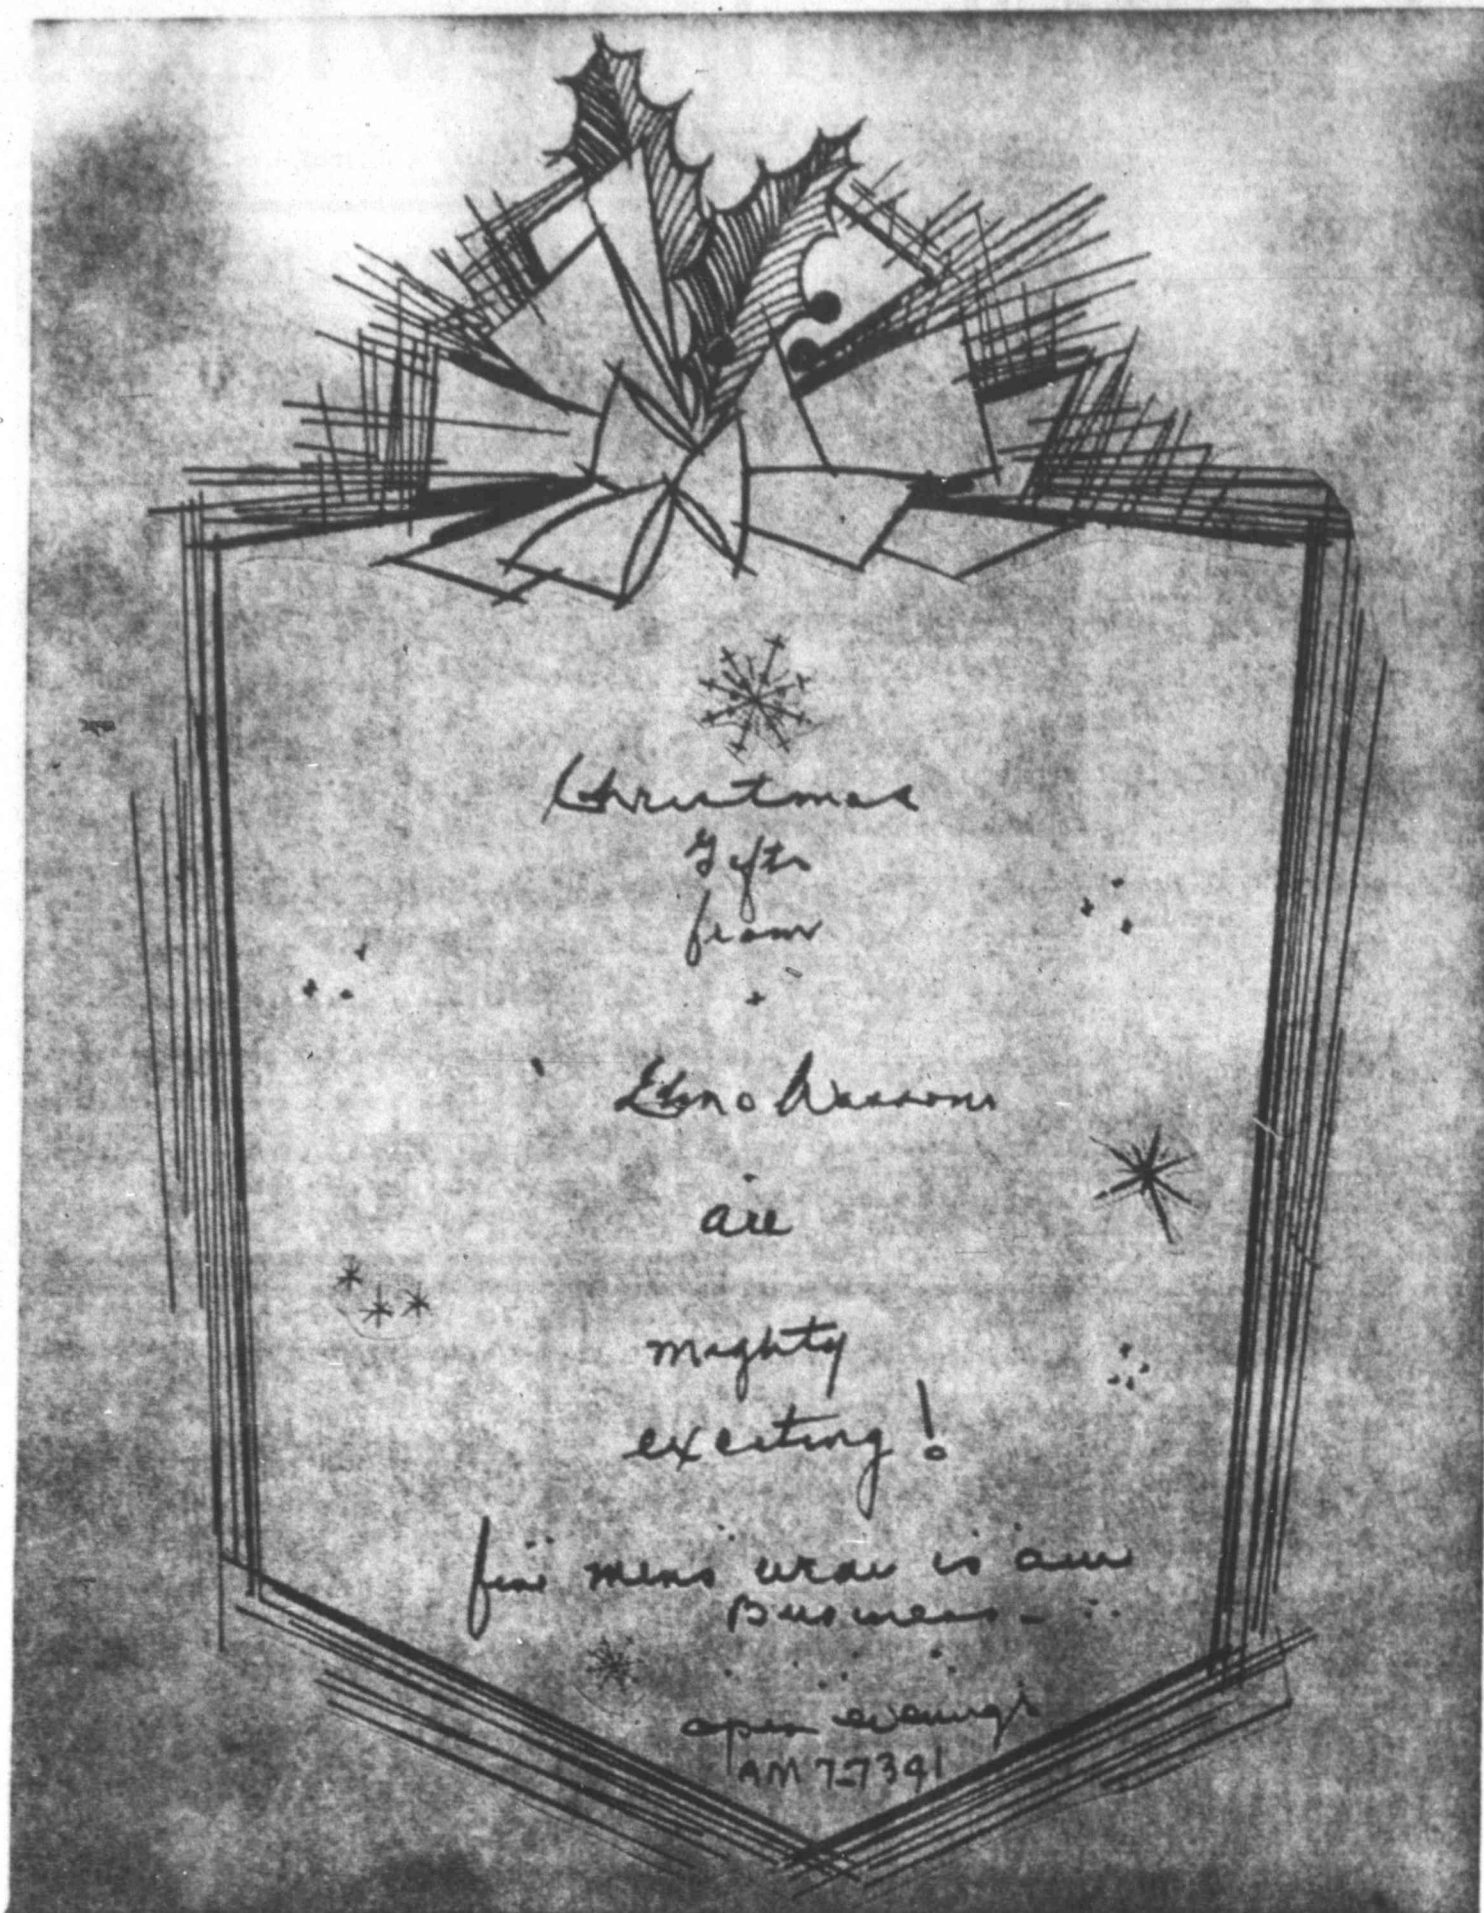 Christmas
Gifts
from
Elmo Wassons
are
mighty
exciting!
fine mens wear is our
Business -
open evenings
AM 7-7341